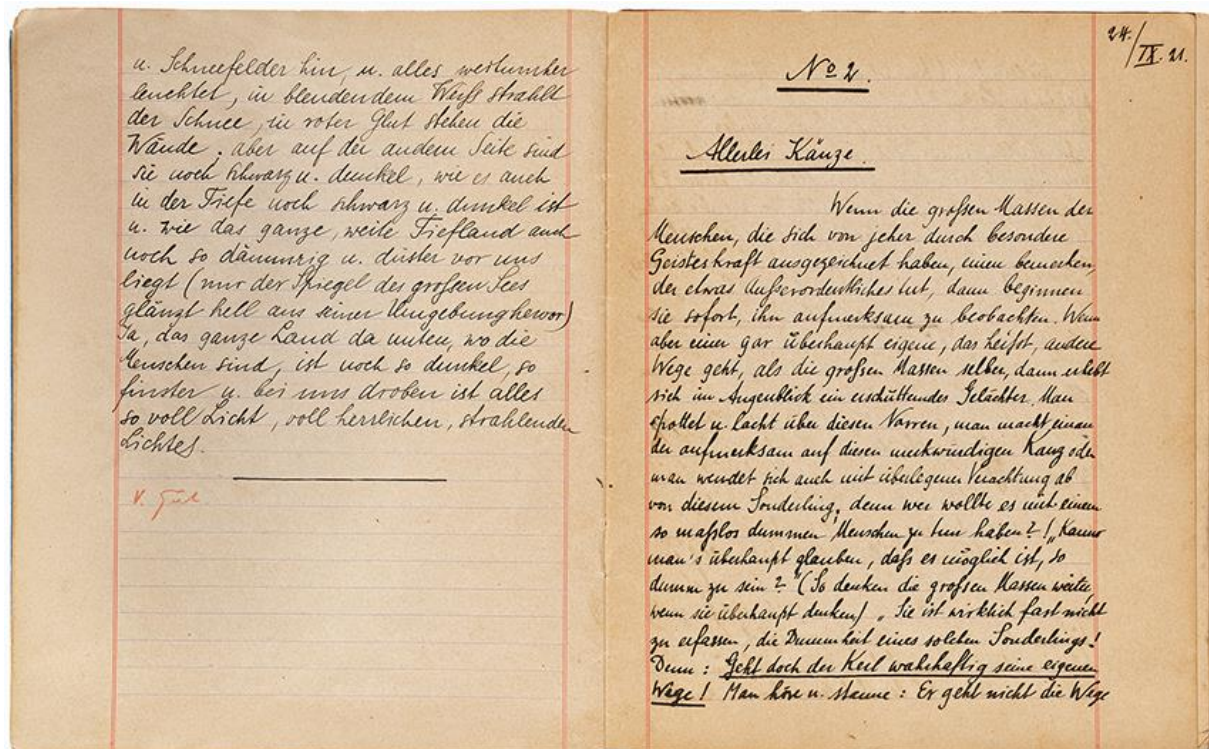 u. Schneefelder hin, u. alles weitumher
leuchtet, in blendendem Weiß strahlt
der Schnee, in roter Glut stehen die
Wände; aber auf der andern Seite sind
sie noch schwarz u. dunkel, wie es auch
in der Tiefe noch schwarz u. dunkel ist
u. wie das ganze, weite Tiefland auch
noch so dämmrig u. düster vor uns
liegt (nur der Spiegel des großen Sees
glänzt hell aus seiner Umgebung hervor)
Ja, das ganze Land da unten, wo die
Menschen sind, ist noch so dunkel, so
finster u. bei uns droben ist alles
so voll Licht, voll herrlichen, strahlenden
Lichtes.
gut
24./IX. 21.
No 2.
Allerlei Käuze.
Wenn die großen Massen der
Menschen, die sich von jeher durch besondere
Geisteskraft ausgezeichnet haben, einen bemerken,
der etwas Außerordentliches tut, dann beginnen
sie sofort, ihn aufmerksam zu beobachten. Wenn
aber einer gar überhaupt eigene, das heißt, andere
Wege geht, als die großen Massen selber, dann erhebt
sich im Augenblick ein erschütterndes Gelächter. Man
spottet u. lacht über diesen Narren, man macht einan
der aufmerksam auf diesen merkwürdigen Kauz oder
man wendet sich auch mit überlegener Verachtung ab
von diesem Sonderling, denn wer wollte es mit einem
so maßlos dummen Menschen zu tun haben? ! „Kann
man's überhaupt glauben, daß es möglich ist, so
dumm zu sein?" (So denken die großen Massen weiter,
wenn sie überhaupt denken) „Sie ist wirklich fast nicht
zu erfassen, die Dummheit eines solchen Sonderlings!
Denn: Geht doch der Kerl wahrhaftig seine eigenen
Wege! Man höre u. staune: Er geht nicht die Wege